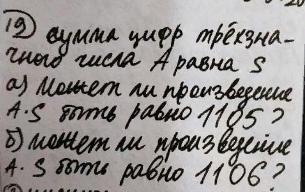 19) сумма цифр трёхзна-
чного числа A равна S
а) может ли произведение
A·S быть равно 1105?
б) может ли произведение
A·S быть равно 1106?